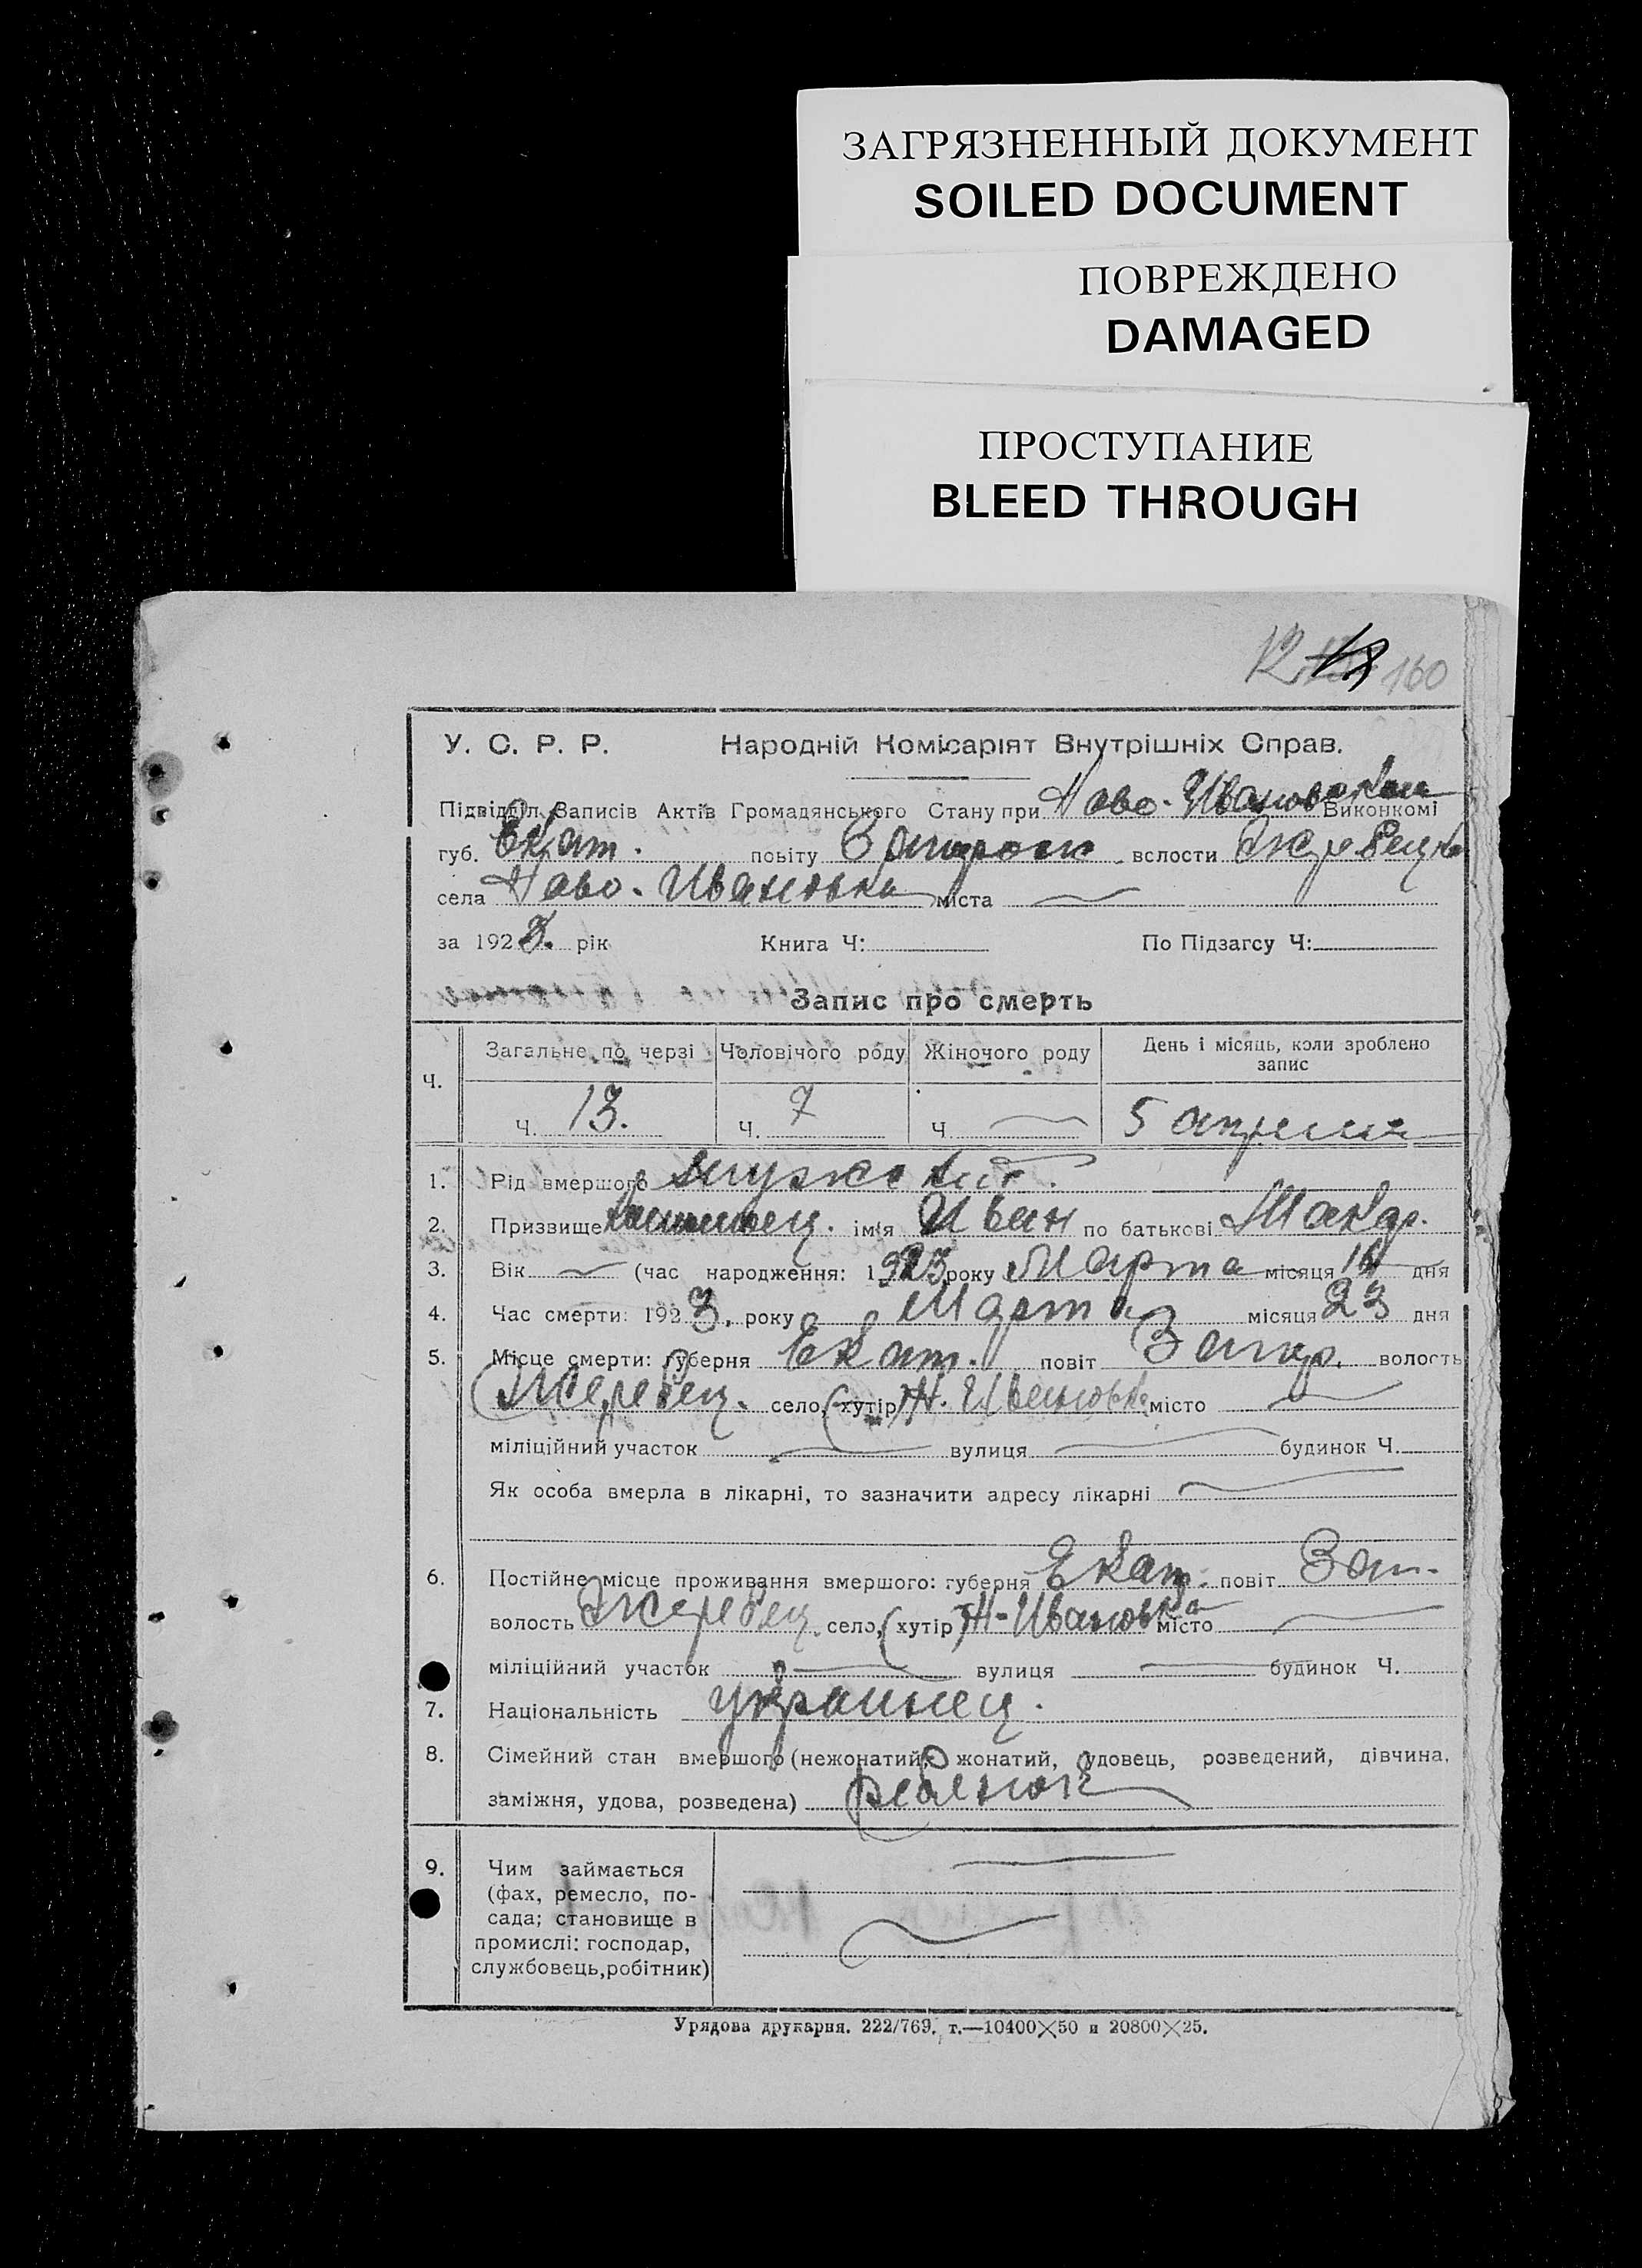 ЗАГРЯЗНЕННЫЙ ДОКУМЕНТ
SOILED DOCUMENT
ПОВРЕЖДЕНО
DAMAGED
ПРОСТУПАНИЕ
BLEED THROUGH
12 160
У. С. Р. Р. Народній Комісаріят Внутрішніх Справ.
Підвідділ Записів Актів Громадянського Стану при Ново-Ивановском Виконкомі
губ. Екат. повіту волости
села Ново-Ивановка міста
за 1923. рік Книга Ч: По Підзагсу Ч:
Запис про смерть
Ч. Загальне по черзі Чоловічого роду Жіночого роду День і місяць, коли зроблено
запис
Ч. 13. Ч. 7 Ч. 5 апреля
1. Рід вмершого мужской.
2. Призвище імʼя Иван по батькові Макар.
3. Вік (час народження: 1923 року Марта місяця 16 дня
4. Час смерти: 1923, року Марта місяця 23 дня
5. Місце смерти: губерня Екат. повіт Запор. волость
Жеребец. село, (хутір) Н. Ивановка місто
міліційний участок вулиця будинок Ч.
Як особа вмерла в лікарні, то зазначити адресу лікарні
6. Постійне місце проживання вмершого: губерня Екат. повіт Зап.
волость Жеребец. село, (хутір) Н-Ивановка місто
міліційний участок вулиця будинок Ч.
7. Національність украинец.
8. Сімейний стан вмершого (нежонатий, жонатий, удовець, розведений, дівчина,
заміжня, удова, розведена) ребенок
9. Чим займається
(фах, ремесло, по-
сада; становище в
промислі: господар,
службовець, робітник)
Урядова друкарня. 222/769. т.—10400×50 и 20800×25.